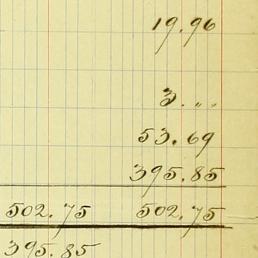 19.96
3. „
53.69
395.85
502.75 502.75
395.85